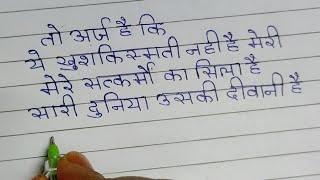 तो अर्ज है कि
ये खुशकिस्मती नही है मेरी
मेरे सत्कर्मों का सिला है
सारी दुनिया उसकी दीवानी है